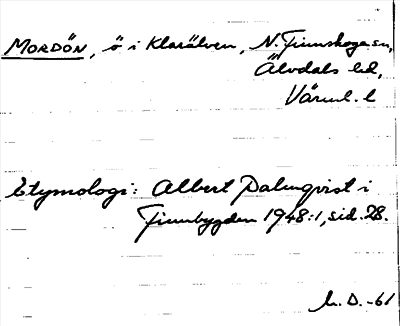 MORDÖN, ö i Klarälven, N. Finnskoga sn,
Älvdals hd,
Värml. l
Etymologi: Albert Palmqvist i
Finnbygden 1948:1, sid. 28.
D. -61